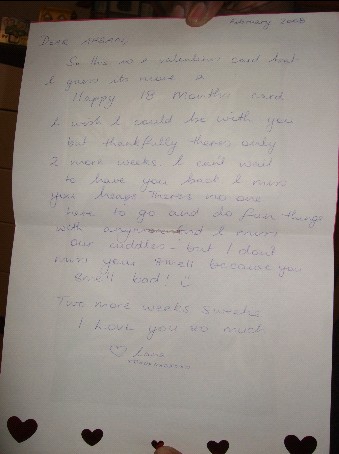 February 2008
Dear
So this is not a valentines card but
I guess its more a
Happy 18 Months card
I wish I could be with you
but thankfully theres only
2 more weeks. I can't wait
to have you back I miss
you heaps theres no one
here to go and do fun things
with anymore and I miss
our cuddles - but I don't
miss your smell because you
smell bad!
Two more weeks sweetie
I love you so much